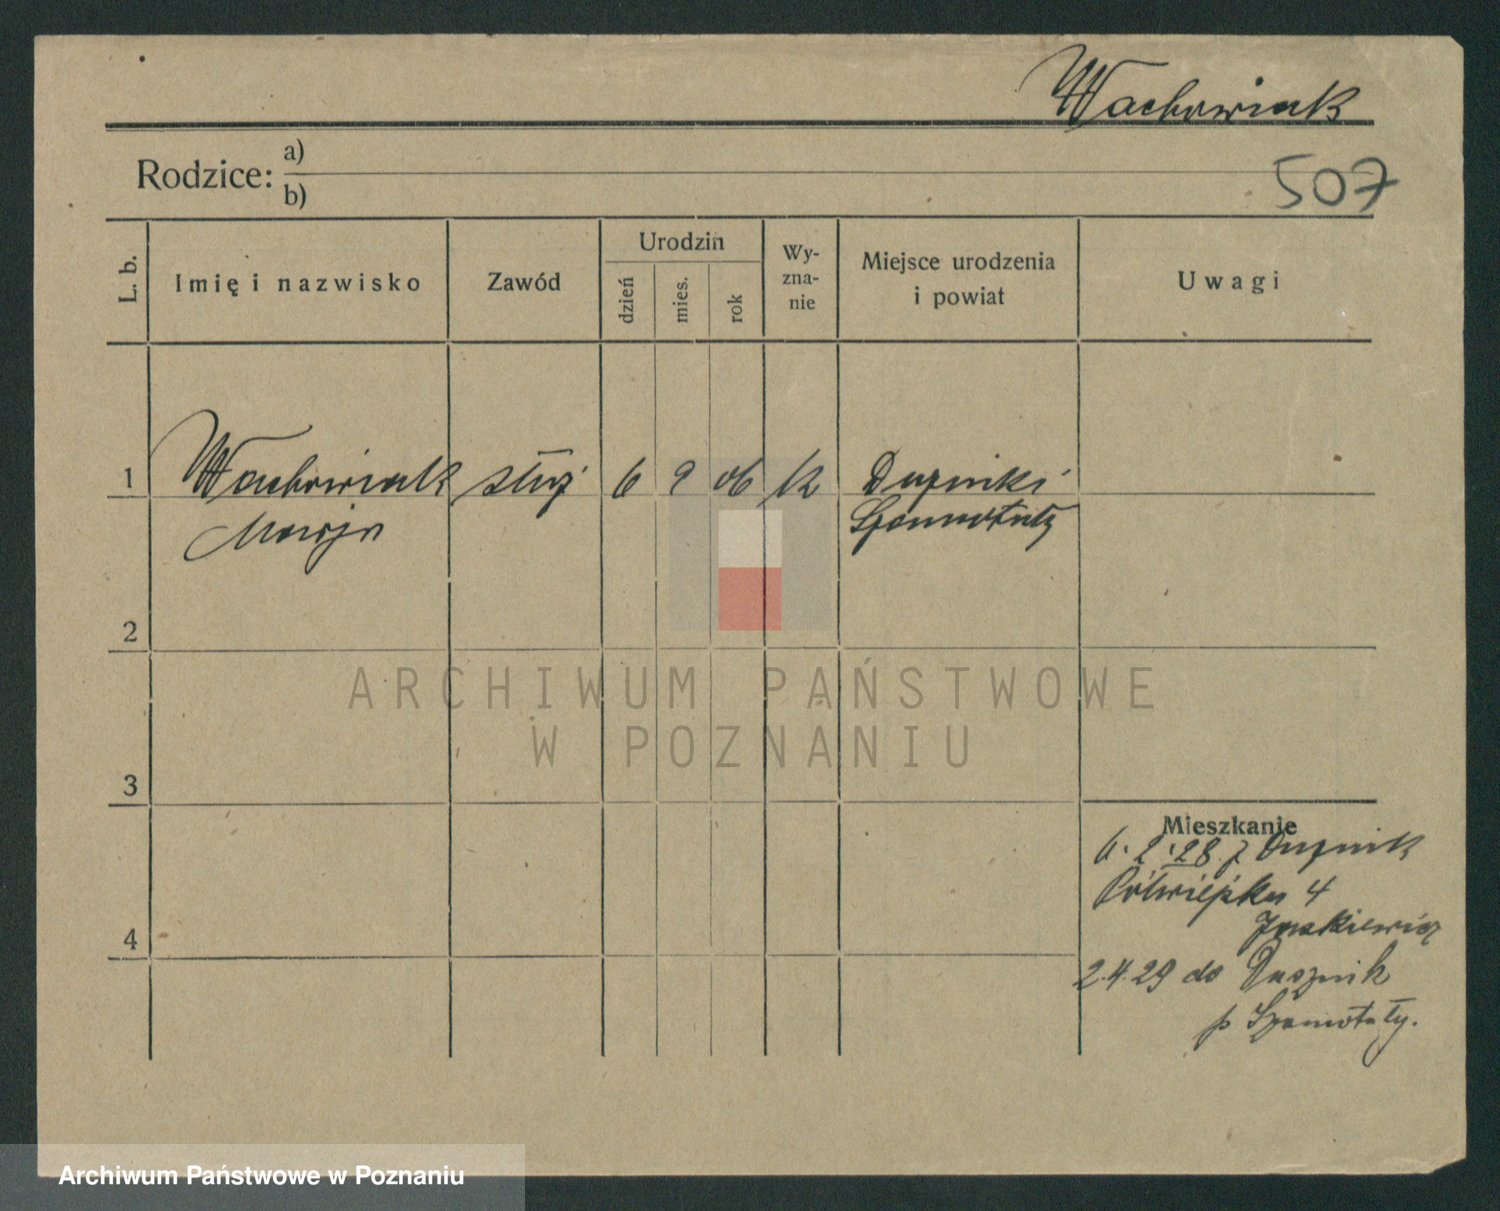 Wachowiak
507
Rodzice: a)
b)
L. b.
Imię i nazwisko
Zawód
Urodzin
dzień
mies.
rok
Wy-
zna-
nie
Miejsce urodzenia
i powiat
Uwagi
1 Wachowiak służ 6 9 06 k Duszniki
Marja Szamotuły
2
3
4
Mieszkanie
6.2.28 z Dusznik
Półwiejska 4
2.4.29 do Dusznik
p Szamotuły.
ARCHIWUM PAŃSTWOWE
W POZNANIU
Archiwum Państwowe w Poznaniu